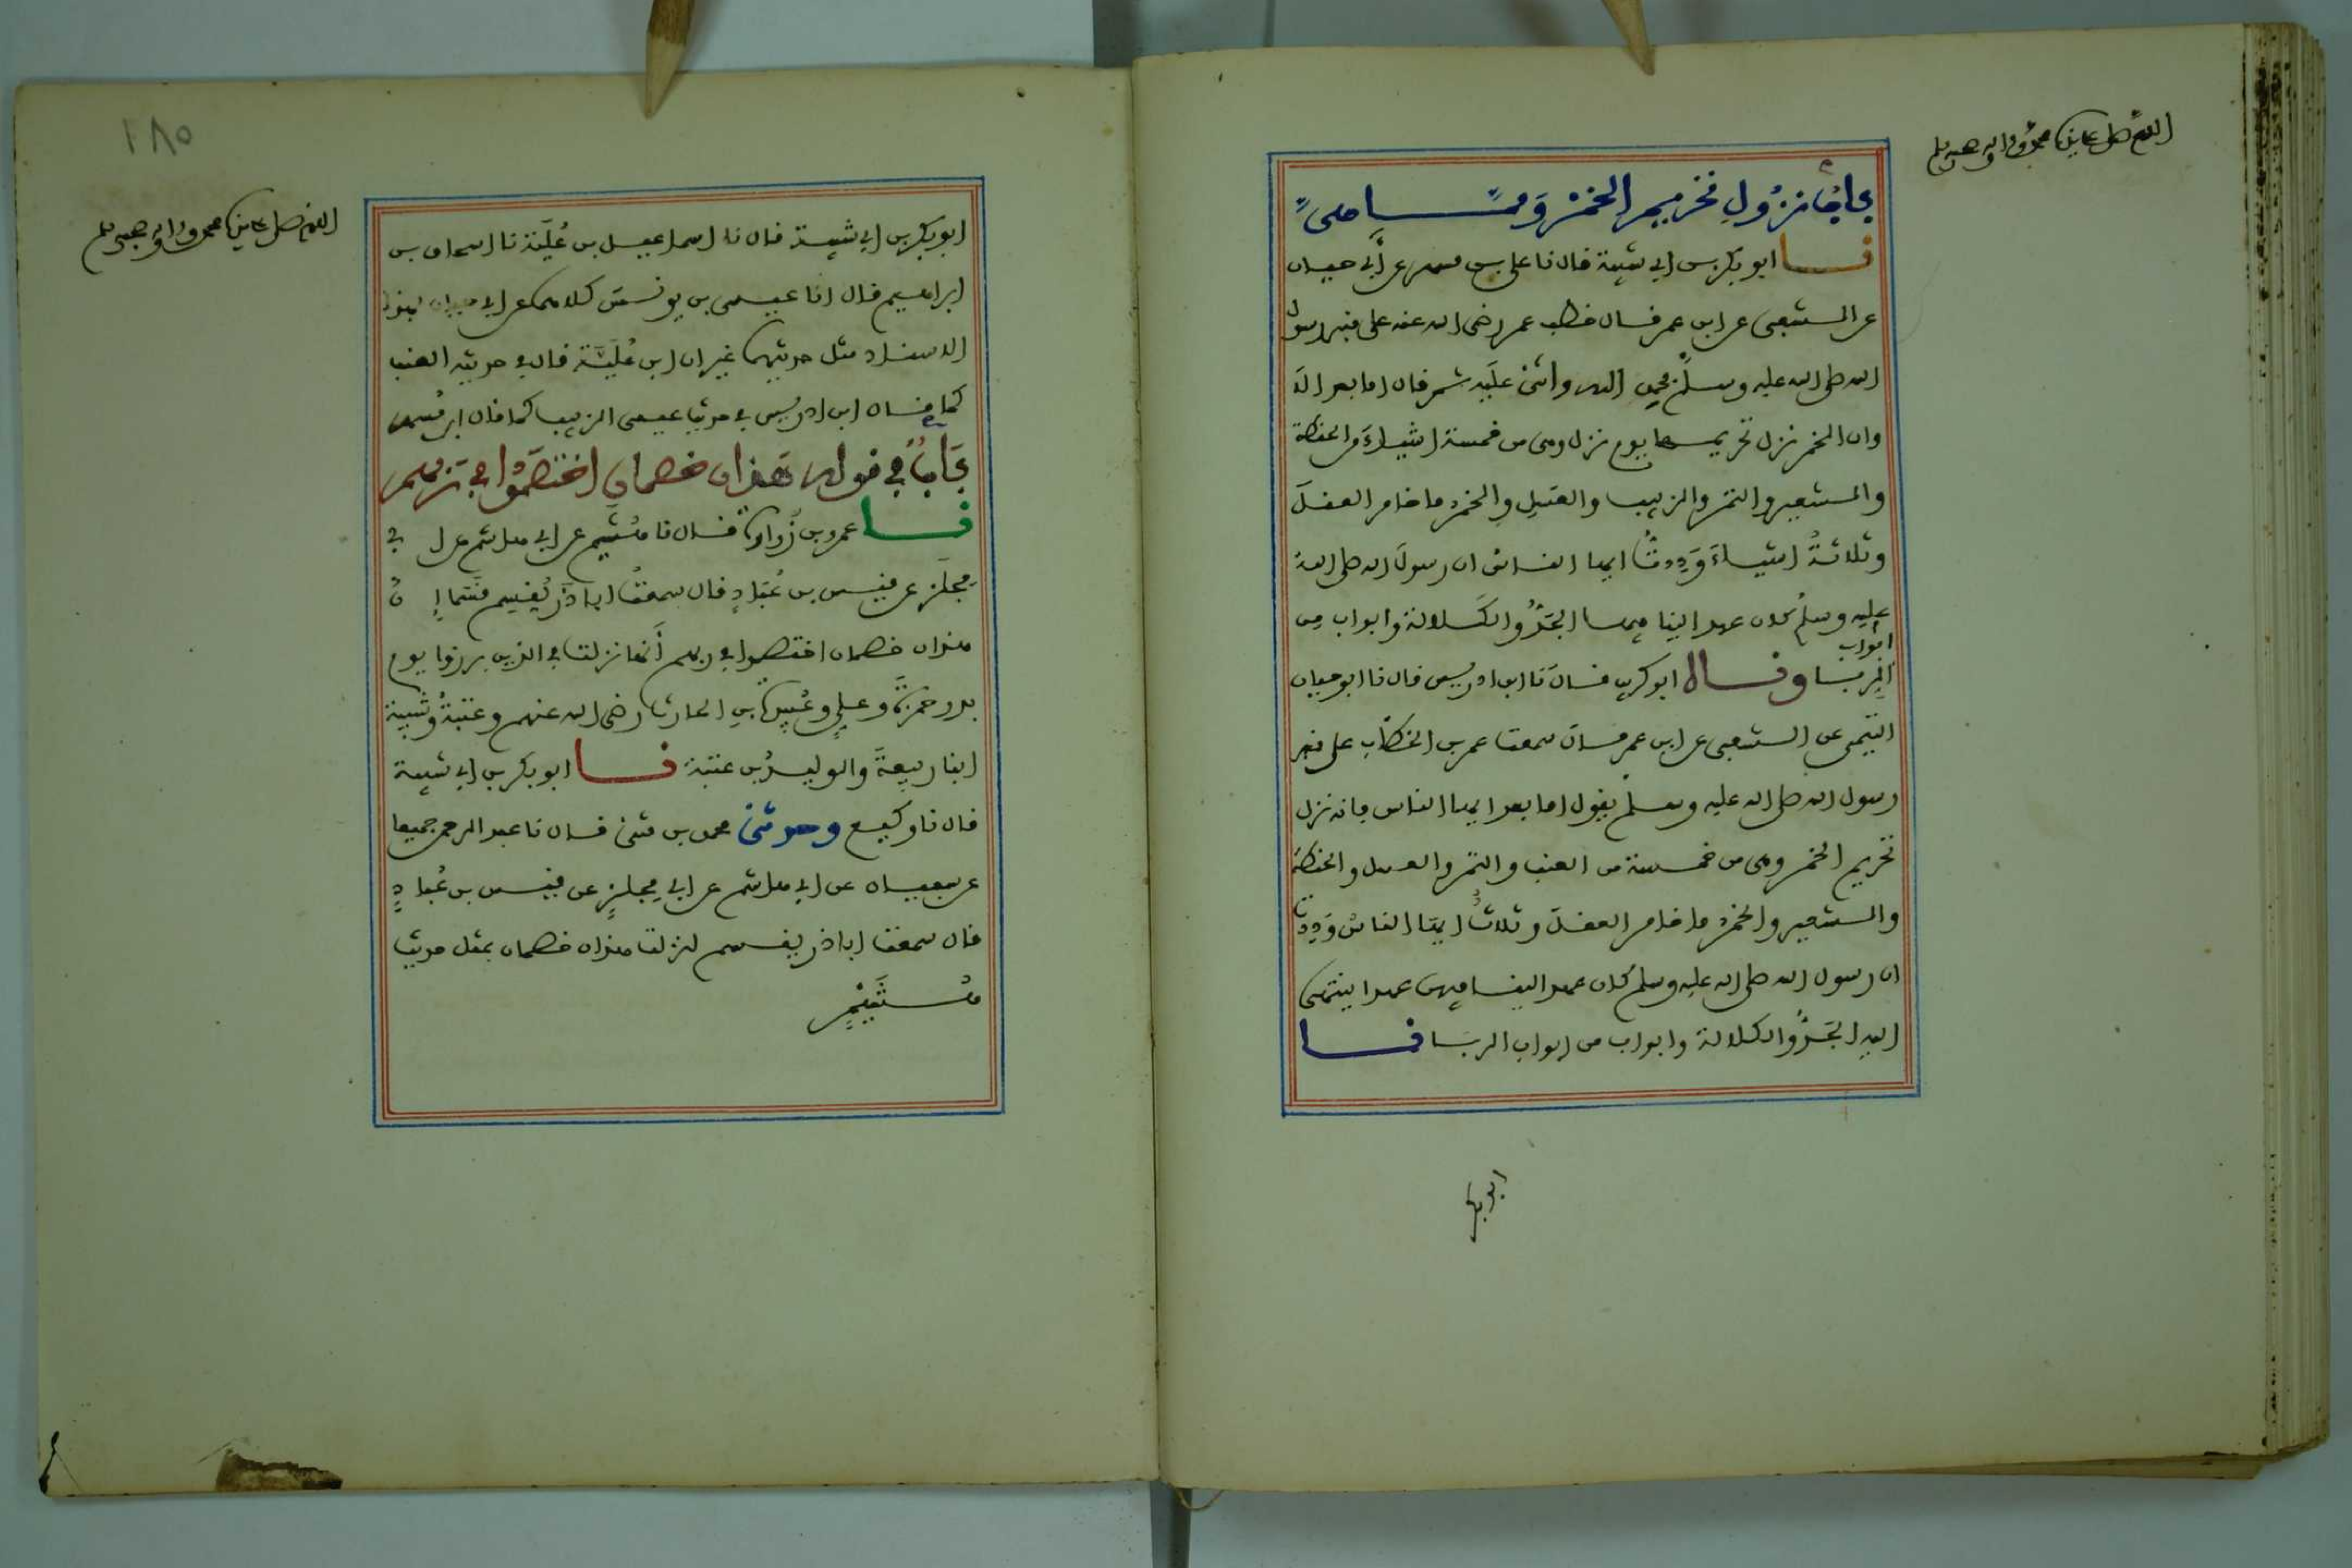 اللهم صل على سيدنا محمد واله وصحبه وسلم
باب نزول تحريم الخمر ومما هى
نا ابو بكر بن ابي شيبة قال نا على بن مسهر عن أبي حيان
عن الشعبى عن ابن عمر قال خطب عمر رضى الله عنه على منبر رسول
الله صلى الله عليه وسلم فحمد الله واثنى عليه ثم قال اما بعد الا
وان الخمر نزل تحريمها يوم نزل وهى من خمسة اشياء من الحنطة
والشعير والتمر والزبيب والعسل والخمر ما خامر العقل
وثلاثة اشياء وددت ايها الناس ان رسول الله صلى الله
عليه وسلم كان عهد الينا فيها الجد والكلالة وابواب من
ابواب
الربا وقال ابو كريب قال نا ابن ادريس قال نا ابو حيان
التيمى عن الشعبى عن ابن عمر قال سمعت عمر بن الخطاب على منبر
رسول الله صلى الله عليه وسلم يقول اما بعد ايها الناس فانه نزل
تحريم الخمر وهى من خمسة من العنب والتمر والعسل والحنطة
والشعير والخمر ما خامر العقل وثلاث ايها الناس وددت
ان رسول الله صلى الله عليه وسلم كان عهد الينا فيهن عهدا ينتهى
اليه الجد والكلالة وابواب من ابواب الربا نا
ابو بكر
١٨٥
اللهم صل على سيدنا محمد واله وصحبه وسلم
ابو بكر بن ابي شيبة قال نا اسماعيل بن علية نا اسحاق بن
ابراهيم قال انا عيسى بن يونس كلاهما عن ابي حيان بهذا
الاسناد مثل حديثهما غير ان ابن علية قال في حديثه العنب
كما قال ابن ادريس في حديث عيسى الزبيب كما قال ابن مسهر
باب في قوله هذان خصمان اختصموا في ربهم
نا عمرو بن زرارة قال نا هشيم عن ابي هاشم عن ا بي
مجلز عن قيس بن عباد قال سمعت ابا ذر يقسم قسما ا ن
هذان خصمان اختصموا في ربهم أنها نزلت في الذين برزوا يوم
بدر حمزة وعلي وعبيدة بن الحارث رضى الله عنهم وعتبة وشيبة
ابنا ربيعة والوليد بن عتبة نا ابو بكر بن ابي شيبة
قال نا وكيع وحدثنى محمد بن مثنى قال نا عبد الرحمن جميعا
عن سفيان عن ابي هاشم عن ابي مجلز عن قيس بن عباد
قال سمعت ابا ذر يقسم لنزلت هذان خصمان بمثل حديث
هشيم